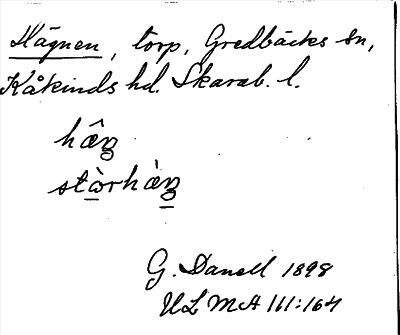 Hägnen, torp, Gredbäcks sn,
Kåkinds hd. Skarab. l.
hæ̂ŋ
stòrhæ̀ŋ
G. Danell 1898
ULMA 111:164